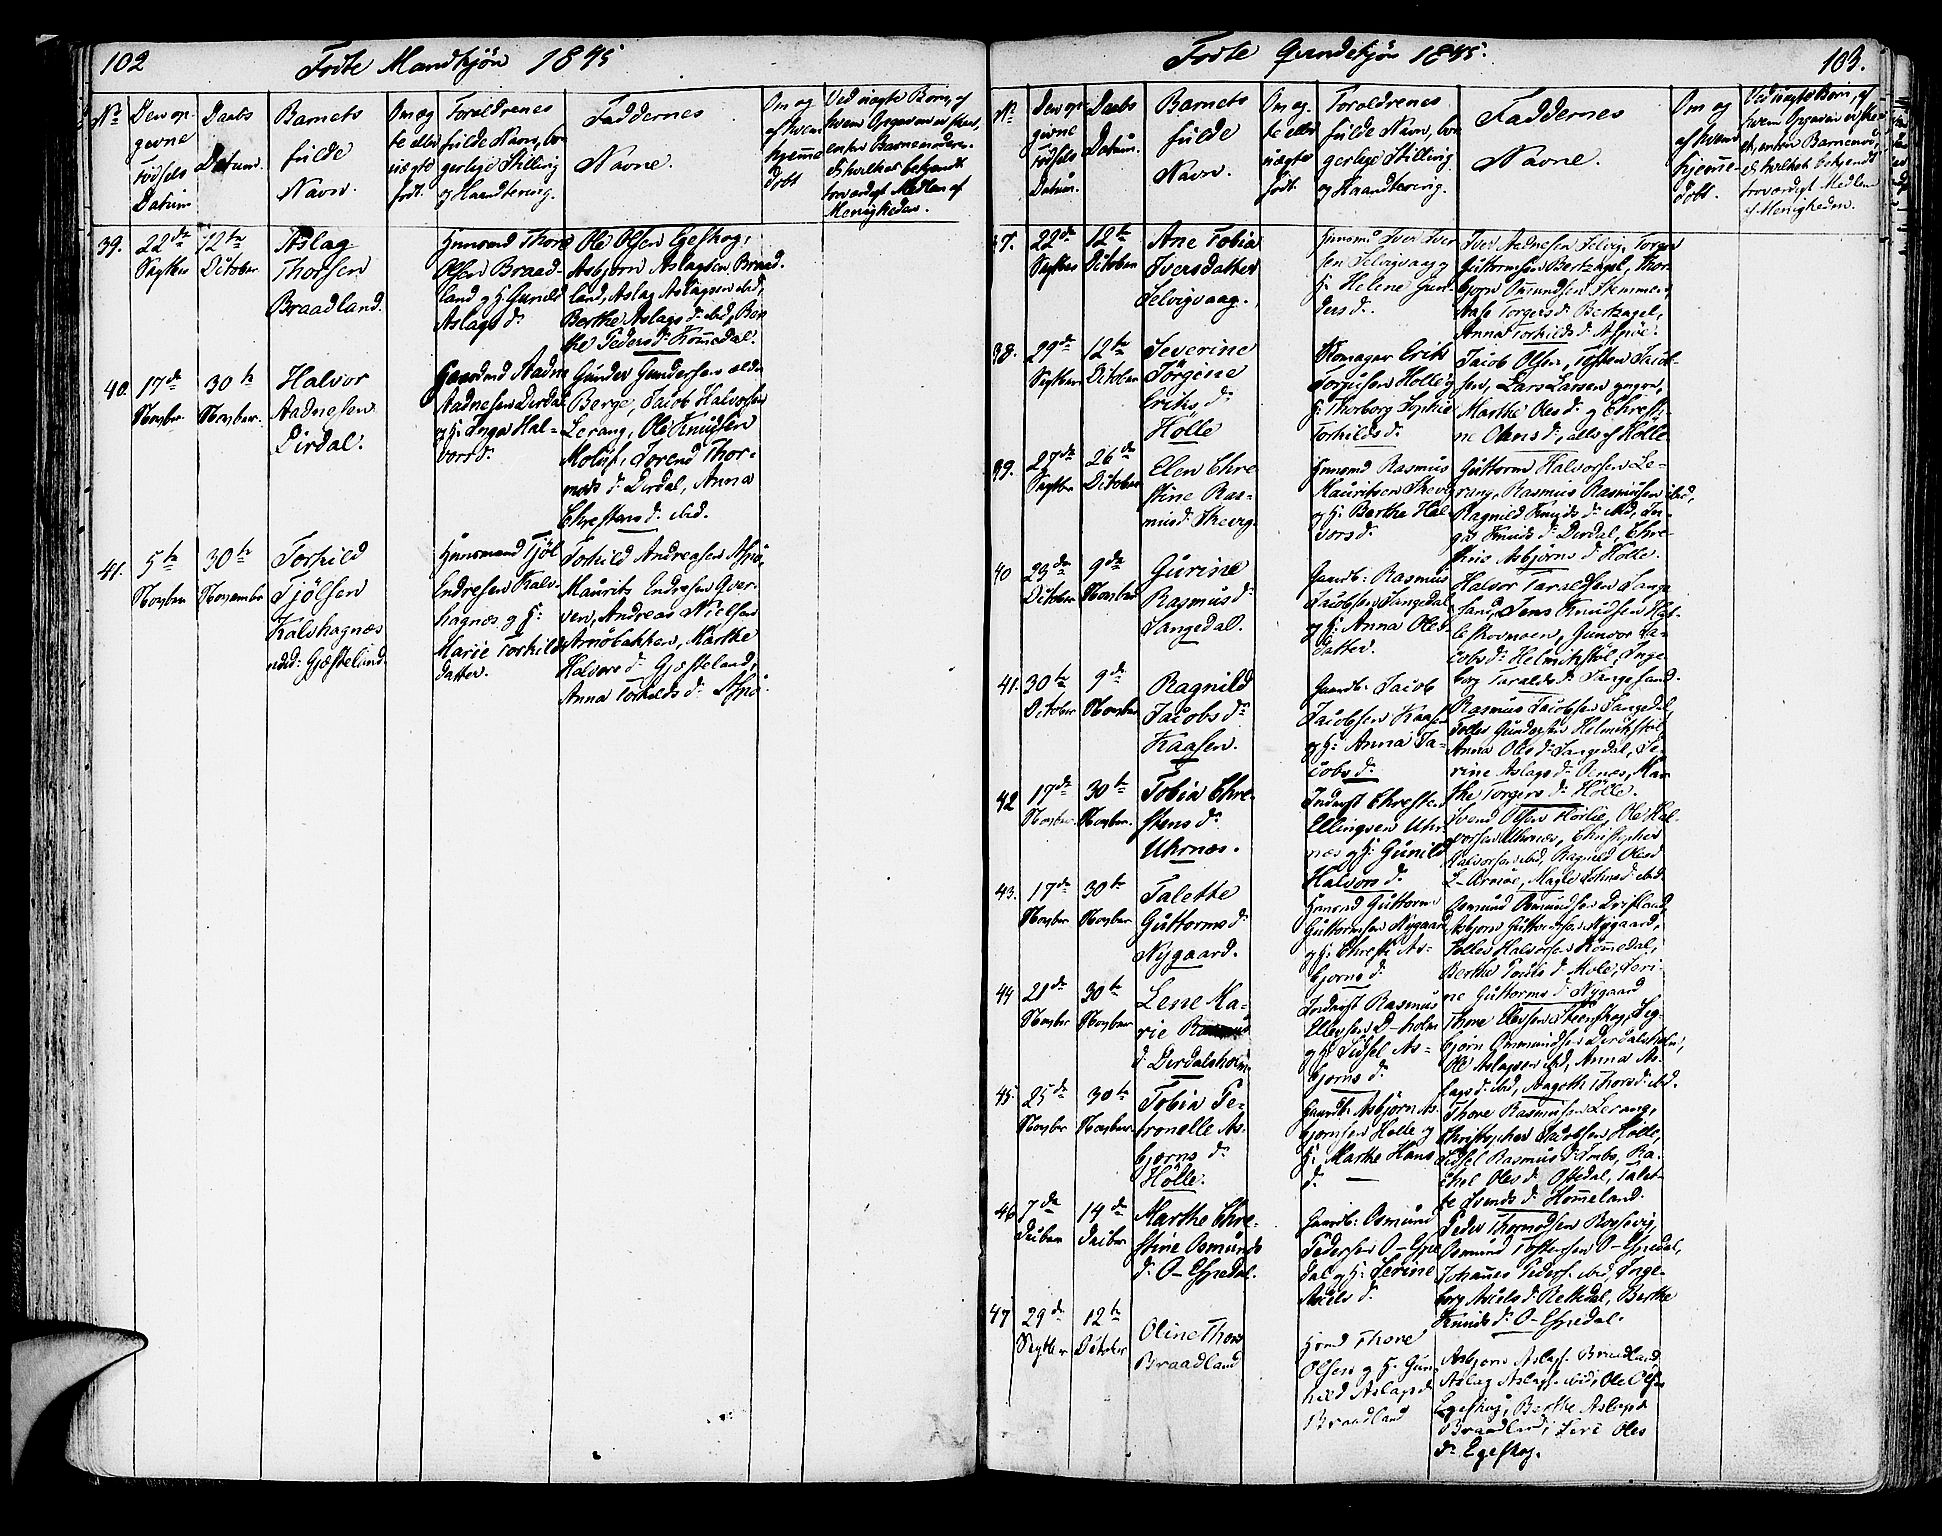 102
Födte Mandkjön 1845
No
Den op-
givne
Fødsels
Datum
Daabs
Datum.
Barnets
fulde
Navn.
Om æg-
te eller
uægte
født.
Forældrenes
fulde Navn, bor-
gerlige Stilling
og Haandtering.
Faddernes
Navne.
Om og
af hvem
hjemme
døbt
Ved uægte Børn, af
hvem Opgaven er skeet,
enten Barnemoderen,
el. hvilket bekjendt
troværdigt Medlem af
Menigheden.
39.
22de
Septber
12te
October
Aslag
Thorsen
Braadland.
Huusmand Thore
Olsen Braad-
land og H. Gunild
Aslagsd.
Ole Olsen Egeskog,
Asbjørn Aslagsen Braad-
land, Aslag Aslagsen ibid,
Berthe Aslagsd. ibid, Ber-
the Pedersd. Kommedal.
40.
17de
Novber
30te
Novber.
Halvor
Aadnesen
Dirdal.
Gaardmd Aadne
Aadnesen Dirdal
og H. Inger Hal-
vorsd.
Gunder Gundersen
Berge, Jacob Halvorsen
Lerang, Ole Knudsen
Molaug, Torend Thor-
mods d. Dirdal, Anna
Christens d. ibid.
41.
5te
Novber
30te
November
Torkild
Tjölsen
Kalshagnæs
Gjæsteland
Huusmand Tjöl
Endresen Kals-
hagnæs og H:
Marie Torkilds
datter.
Torkild Andreasen
Maurits Endresen Qver-
ven, Andreas Nielsen
Arnøbakken, Marthe
Halvors d. Gjæsteland,
Anna Torkilds d.
103.
Födte Qvindekjön 1845.
No
Den op-
givne
Fødsels
Datum.
Daabs
Datum.
Barnets
fulde
Navn.
Om æg-
te eller
uægte
født.
Forældrenes
fulde Navn, bor-
gerlige Stilling
og Haandtering.
Faddernes
Navne.
Om og
af hvem
hjemme-
døbt.
Ved uægte Børn, af
hvem Opgaven er ske-
et, enten Barnemod.,
el. hvilket bekjendt
troværdigt Medlem
af Menigheden.
37.
22de
Septber
12te
October
Ane Tobia
Iversdatter
Selvigvaag.
Huusmd Iver Iver-
sen Selvigvaag og
H. Helene Gun-
dersd.
Iver Aadnesen Selvig, Torger
Guttormsen Bertzagel, Thor-
bjørn Omundsen Stemmen,
Aase Torgersd. Bertzagel,
Anna Torkildsd.
38.
29de
Septber
12te
October
Severine
Törgine
Eriks d.
Holle
Skomager Erik
Torgiusen Holle og
H: Thorborg Sophie
Torkildsd.
Jacob Olsen, Tosten Jacob-
sen, Lars Larsen
Marthe Olesd. og Christi-
ne Olens d., alle af Holle
39.
27de
Septber
26de
October
Elen Chri-
stine Ras-
musd. Skevig
Huusmd Rasmus
Mauritsen Skevig
og H: Berthe Hal-
vorsd.
Guttorm Halvorsen Le-
rang, Rasmus Rasmusen ibid,
Ragnild Knuds d. ibid, In-
ger Knuds d. Dirdal, Chri-
stine Asbjørns d. Holle.
40
23de
October
9de
Novber
Gurine
Rasmus d.
Sangedal.
Gaardb: Rasmus
Jacobsen Sangedal
og H: Anna Oles-
datter.
Halvor Taraldsen Sange-
sand, Jens Knudsen Hel-
leskovmoen, Gunvor Ja-
cobs d. Helmikstöl, Inge-
borg Taralds d. Sangesand.
41.
30te
October
9de
Novber
Ragnild
Jacobs d.
Kaasen.
Gaardb: Jacob
Jacobsen Kaasen
og H: Anna Ja-
cobs d:
Rasmus Jacobsen Sangedal,
Tolles Gundersen Helmikstöl,
Anna Oles d. Sangedal, Se-
rine Aslags d. Oenæs, Mar-
the Torgers d. Hölle.
42
17de
Novber.
30te
Novber.
Tobia Chri-
stens d.
Uhrnæs.
Inderst Christen
Ellingsen Uhr-
næs og H: Gunild
Halvors d.
Svend Olsen Hörlie, Ole Hal-
vorsen Uhrnæs, Christopher
Halvorsen ibid, Ragnild Olesd
L-Arnöe, ibid.
43.
17de
Novber
30te
Novber
Talette
Guttorms d.
Nygaard.
Huusmd Guttorm
Guttormsen Nygaard
og H: Christi As-
bjørns d.
Osmund Osmundsen Drifland,
Asbjørn Guttormsen Nygaard,
Tolles Halvorsen Kommedal,
Berthe Pouls d. Mele, Seri-
ne Guttorms d. Nygaard
44
21de
Novber
30te
Novber.
Lene Ma-
rie Rasmus
d. Dirdalsholm
Inderst Rasmus
Ellevsen D-holm
og H: Sidsel As-
bjørns d.
Thore Elevsen Steenskog, Seg-
bjørn Ommundsen Dirdalsholm,
Ole Aslagsen ibid, Anna As-
lags d. ibid, Aagoth Thors d. ibid.
45.
25de
Novber
30te
Novber.
Tobia Pe-
tronelle As-
bjørns d.
Hölle.
Gaardb: Asbjørn As-
bjørnsen Hölle og
H: Marthe Hans
d.
Thore Rasmusen Lerang,
Christopher Jacobsen Hölle,
Sidsel Rasmus d. Imbs, Ra-
chel Oles d. Oftedal, Talet-
te Svends d. Hommeland.
46
7de
Decbr
14de
Decbr
Marthe Chri-
stine Osmunds
d. O-Espedal.
Gaardb: Osmund
Pedersen O-Espe-
dal og H: Serine
Axels d.
Peder Thormodsen Roesevig,
Osmund Tostensen O-Espedal,
Johannes Peders. ibid, Inge-
borg Axels d. Rettedal, Berthe
Knuds d. O-Espedal.
47
29de
Septber
12te
October
Oline Thors
Braadland
Hmd Thore
Olsen og H. Gun-
hild Aslagsd
Braadland
Asbjørn Aslags. Braadland,
Aslag Aslags. ibid, Ole Olsen
Egeskog, Berthe Aslagsd
Braadland, Siri Oles
d. Egeskog.